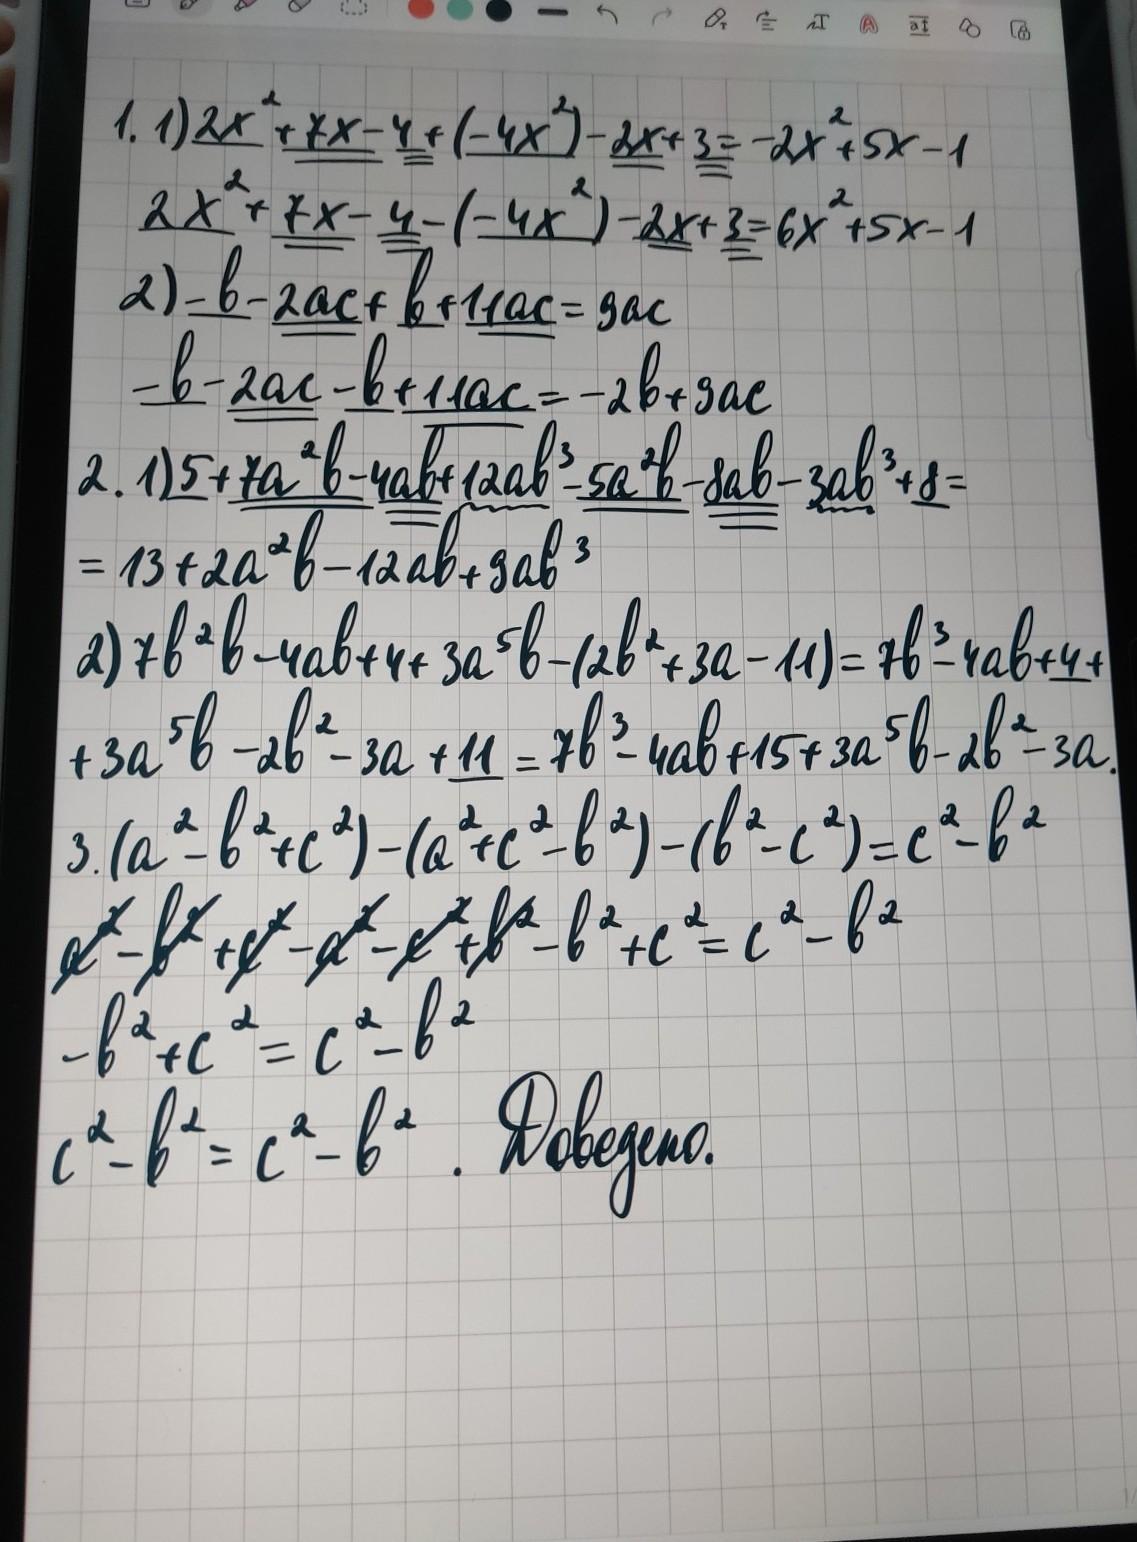 1. 1) 2x² + 7x - 4 + (-4x²) - 2x + 3 = -2x² + 5x - 1
2x² + 7x - 4 - (-4x²) - 2x + 3 = 6x² + 5x - 1
2) -b - 2ac + b + 11ac = 9ac
-b - 2ac - b + 11ac = -2b + 9ac
2. 1) 5 + 7a²b - 4ab + 12ab³ - 5a²b - 8ab - 3ab³ + 8 =
= 13 + 2a²b - 12ab + 9ab³
2) 7b²b - 4ab + 4 + 3a⁵b - (2b² + 3a - 11) = 7b³ - 4ab + 4 +
+ 3a⁵b - 2b² - 3a + 11 = 7b³ - 4ab + 15 + 3a⁵b - 2b² - 3a.
3. (a² - b² + c²) - (a² + c² - b²) - (b² - c²) = c² - b²
a² - b² + c² - a² - c² + b² - b² + c² = c² - b²
-b² + c² = c² - b²
c² - b² = c² - b². Доведено.